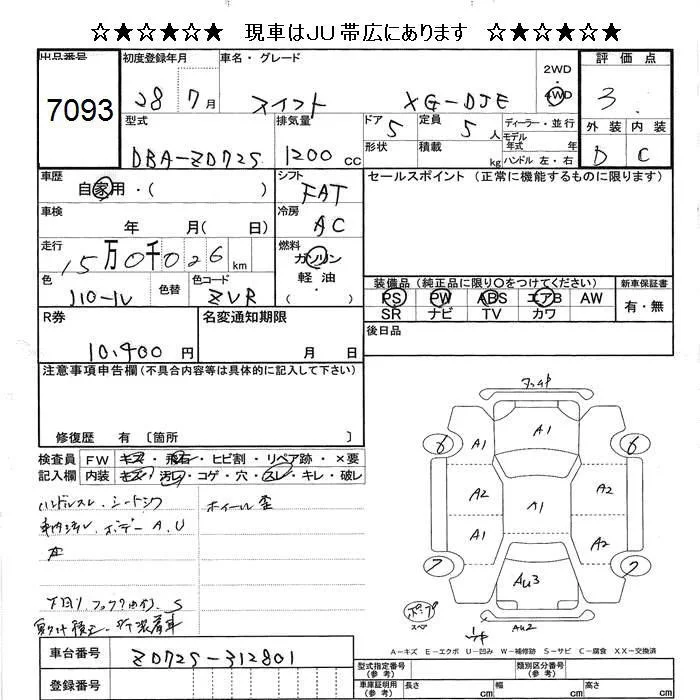 ☆★☆★☆★ 現車はJU帯広にあります ☆★☆★☆★
出品番号 7093
初度登録年月 28 7月
車名・グレード スイフト XG-DJE
2WD
4WD
評価点 3
外装 内装
D C
型式 DBA-ZD72S
排気量 1200 cc
ドア 5
形状
定員 5 人
積載 kg
ディーラー・並行
モデル
年式 年
ハンドル 左・右
車歴 自家用・( )
シフト FAT
セールスポイント (正常に機能するものに限ります)
車検 年 月( 日)
冷房 AC
走行 15万0千026 km
燃料 ガソリン
軽油
( )
色 色替 色コード ZVR
装備品 (純正品に限り○をつけてください)
PS PW ABS エアB AW
SR ナビ TV カワ
新車保証書
有・無
R券 10,400 円
名変通知期限 月 日
後日品
注意事項申告欄 (不具合内容等は具体的に記入して下さい)
修復歴 有 〔箇所 〕
検査員 FW キズ・飛石・ヒビ割・リペア跡・×要
記入欄 内装 キズ・汚レ・コゲ・穴・スレ・キレ・破レ
ハンドルスレ、シートシワ
ホイール歪
ボデー A、U
S
A1
A1
6 6
A2 A1 A2
A1 A2
7 7
AU3
AU2
A-キズ E-エクボ U-凹み W-補修跡 S-サビ C-腐食 XX-交換済
車台番号 ZD72S-312801
登録番号
型式指定番号
(参考)
類別区分番号
(参考)
車庫証明用
(参考)
長さ cm 幅 cm 高さ cm